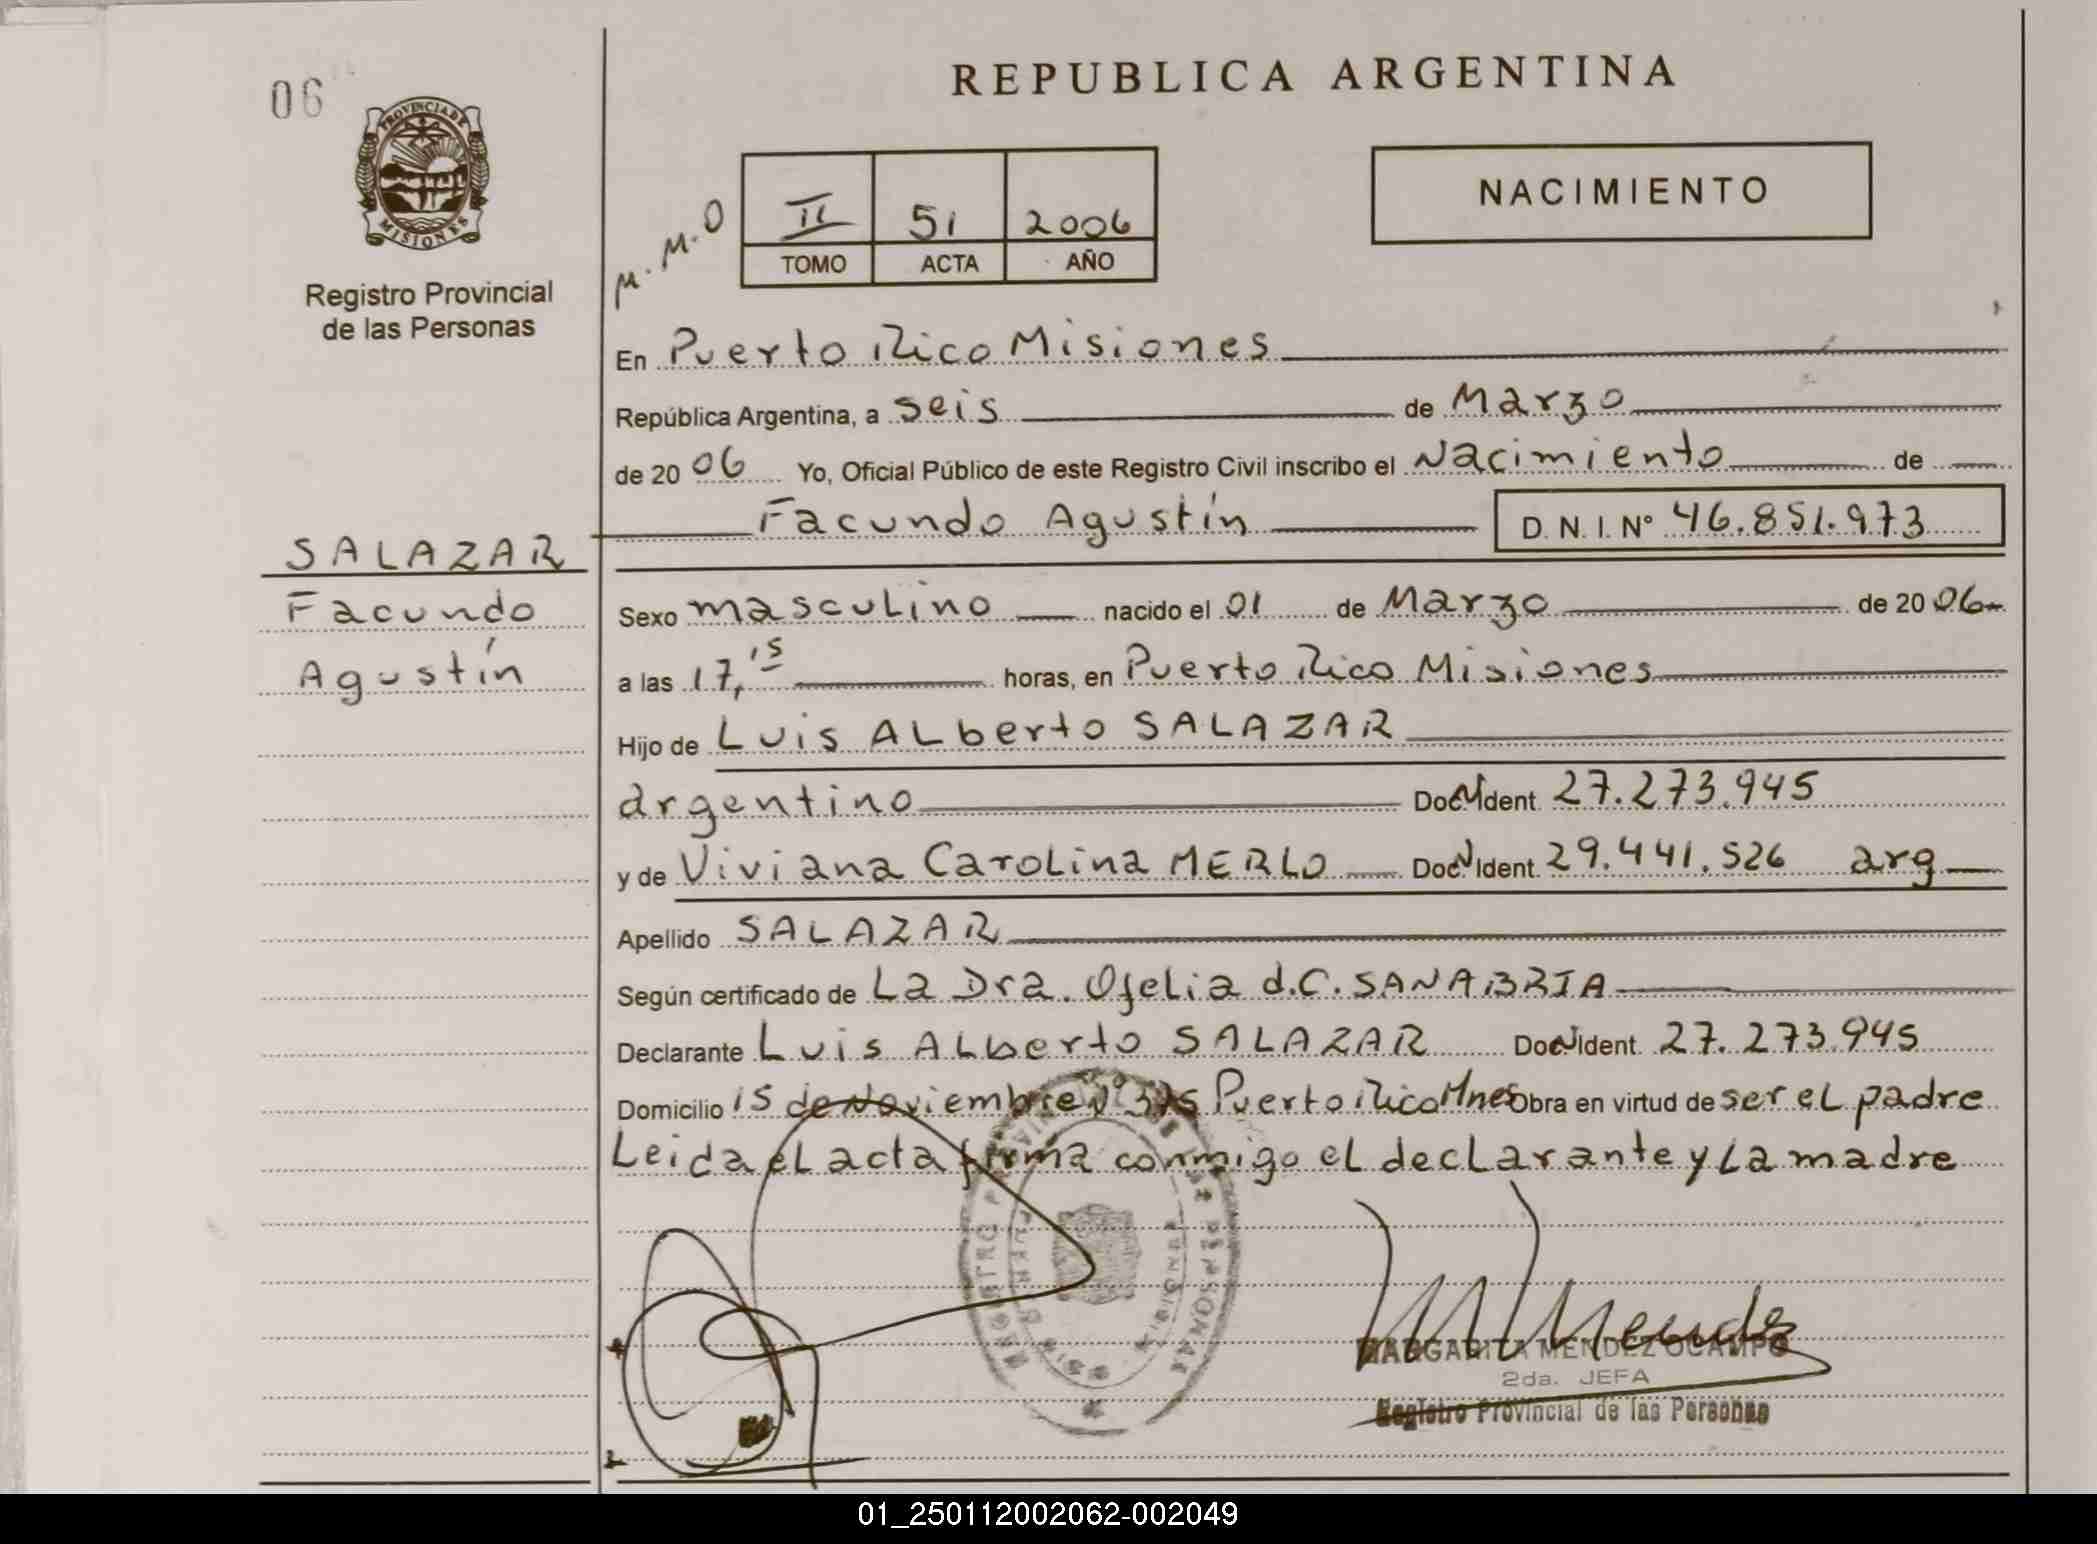 06
PROVINCIA DE
MISIONES
Registro Provincial
de las Personas
SALAZAR
Facundo
Agustín
REPUBLICA ARGENTINA
M.M.O
II 51 2006
TOMO ACTA AÑO
NACIMIENTO
En Puerto Rico Misiones
República Argentina, a seis de Marzo
de 20 06 Yo, Oficial Público de este Registro Civil inscribo el Nacimiento de
Facundo Agustín D.N.I. N° 46.851.973
Sexo masculino nacido el 01 de Marzo de 20 06
a las 17,15 horas, en Puerto Rico Misiones
Hijo de Luis Alberto SALAZAR
argentino Doc N Ident. 27.273.945
y de Viviana Carolina MERLO Doc N Ident. 29.441.526 arg
Apellido SALAZAR
Según certificado de La Dra. Ofelia d.C. SANABRIA
Declarante Luis Alberto SALAZAR Doc N Ident. 27.273.945
Domicilio 15 de Noviembre N° Puerto Rico Mnes Obra en virtud de ser el padre
Leida el acta firma conmigo el declarante y La madre
REGISTRO PROVINCIAL DE LAS PERSONAS
MARGARITA MENDEZ OCAMPO
2da. JEFA
Registro Provincial de las Personas
01_250112002062-002049